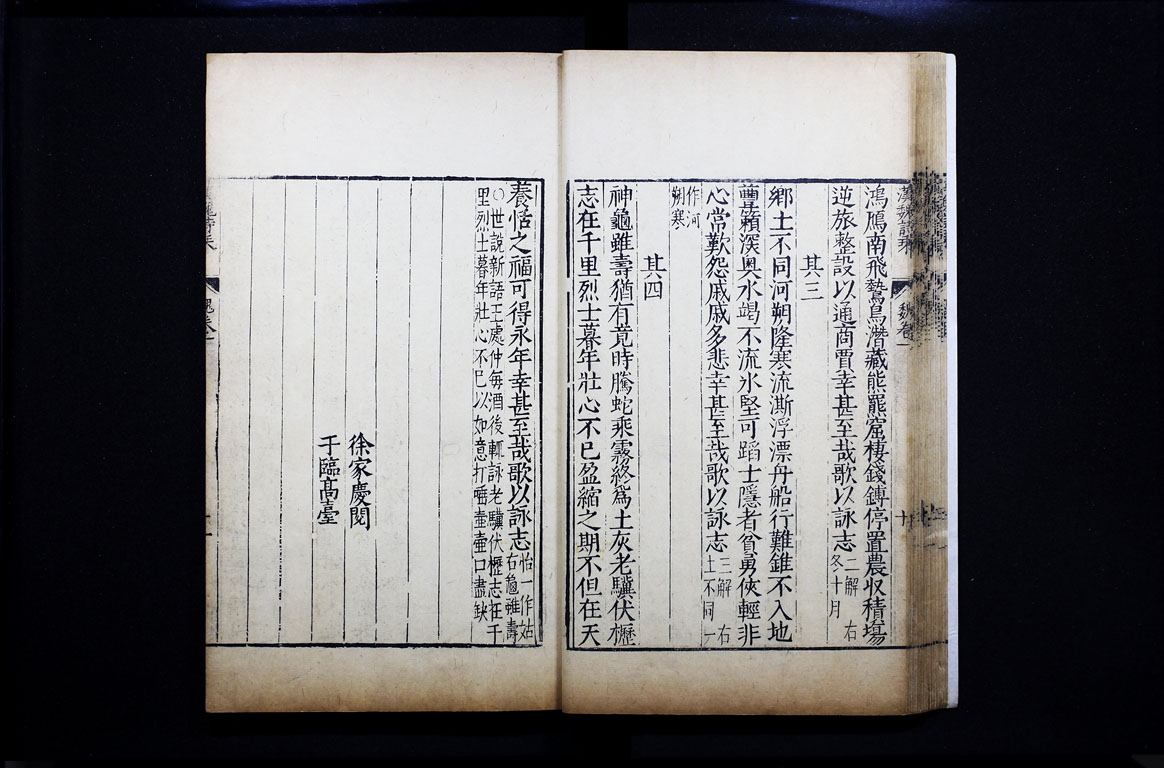 漢魏詩乘
魏卷一
十
鴻鴈南飛鷙鳥潛藏熊羆窟棲錢鎛停置農収積塲
逆旅整設以通商賈幸甚至哉歌以詠志二解 右
冬十月
其三
鄉土不同河朔隆寒流澌浮漂舟船行難錐不入地
蘴藾深奥水竭不流氷堅可蹈士隱者貧勇俠輕非
心常歎怨戚戚多悲幸甚至哉歌以詠志三解 右
土不同一
作河
朔寒
其四
神龜雖壽猶有竟時騰蛇乘霧終爲土灰老驥伏櫪
志在千里烈士暮年壯心不已盈縮之期不但在天
養恬之福可得永年幸甚至哉歌以詠志怡一作姑
右龜雖壽
○世說新語王處仲每酒後輒詠老驥伏櫪志在千
里烈士暮年壯心不已以如意打唾壷壷口盡缺
徐家慶閱
于臨高臺
魏卷一